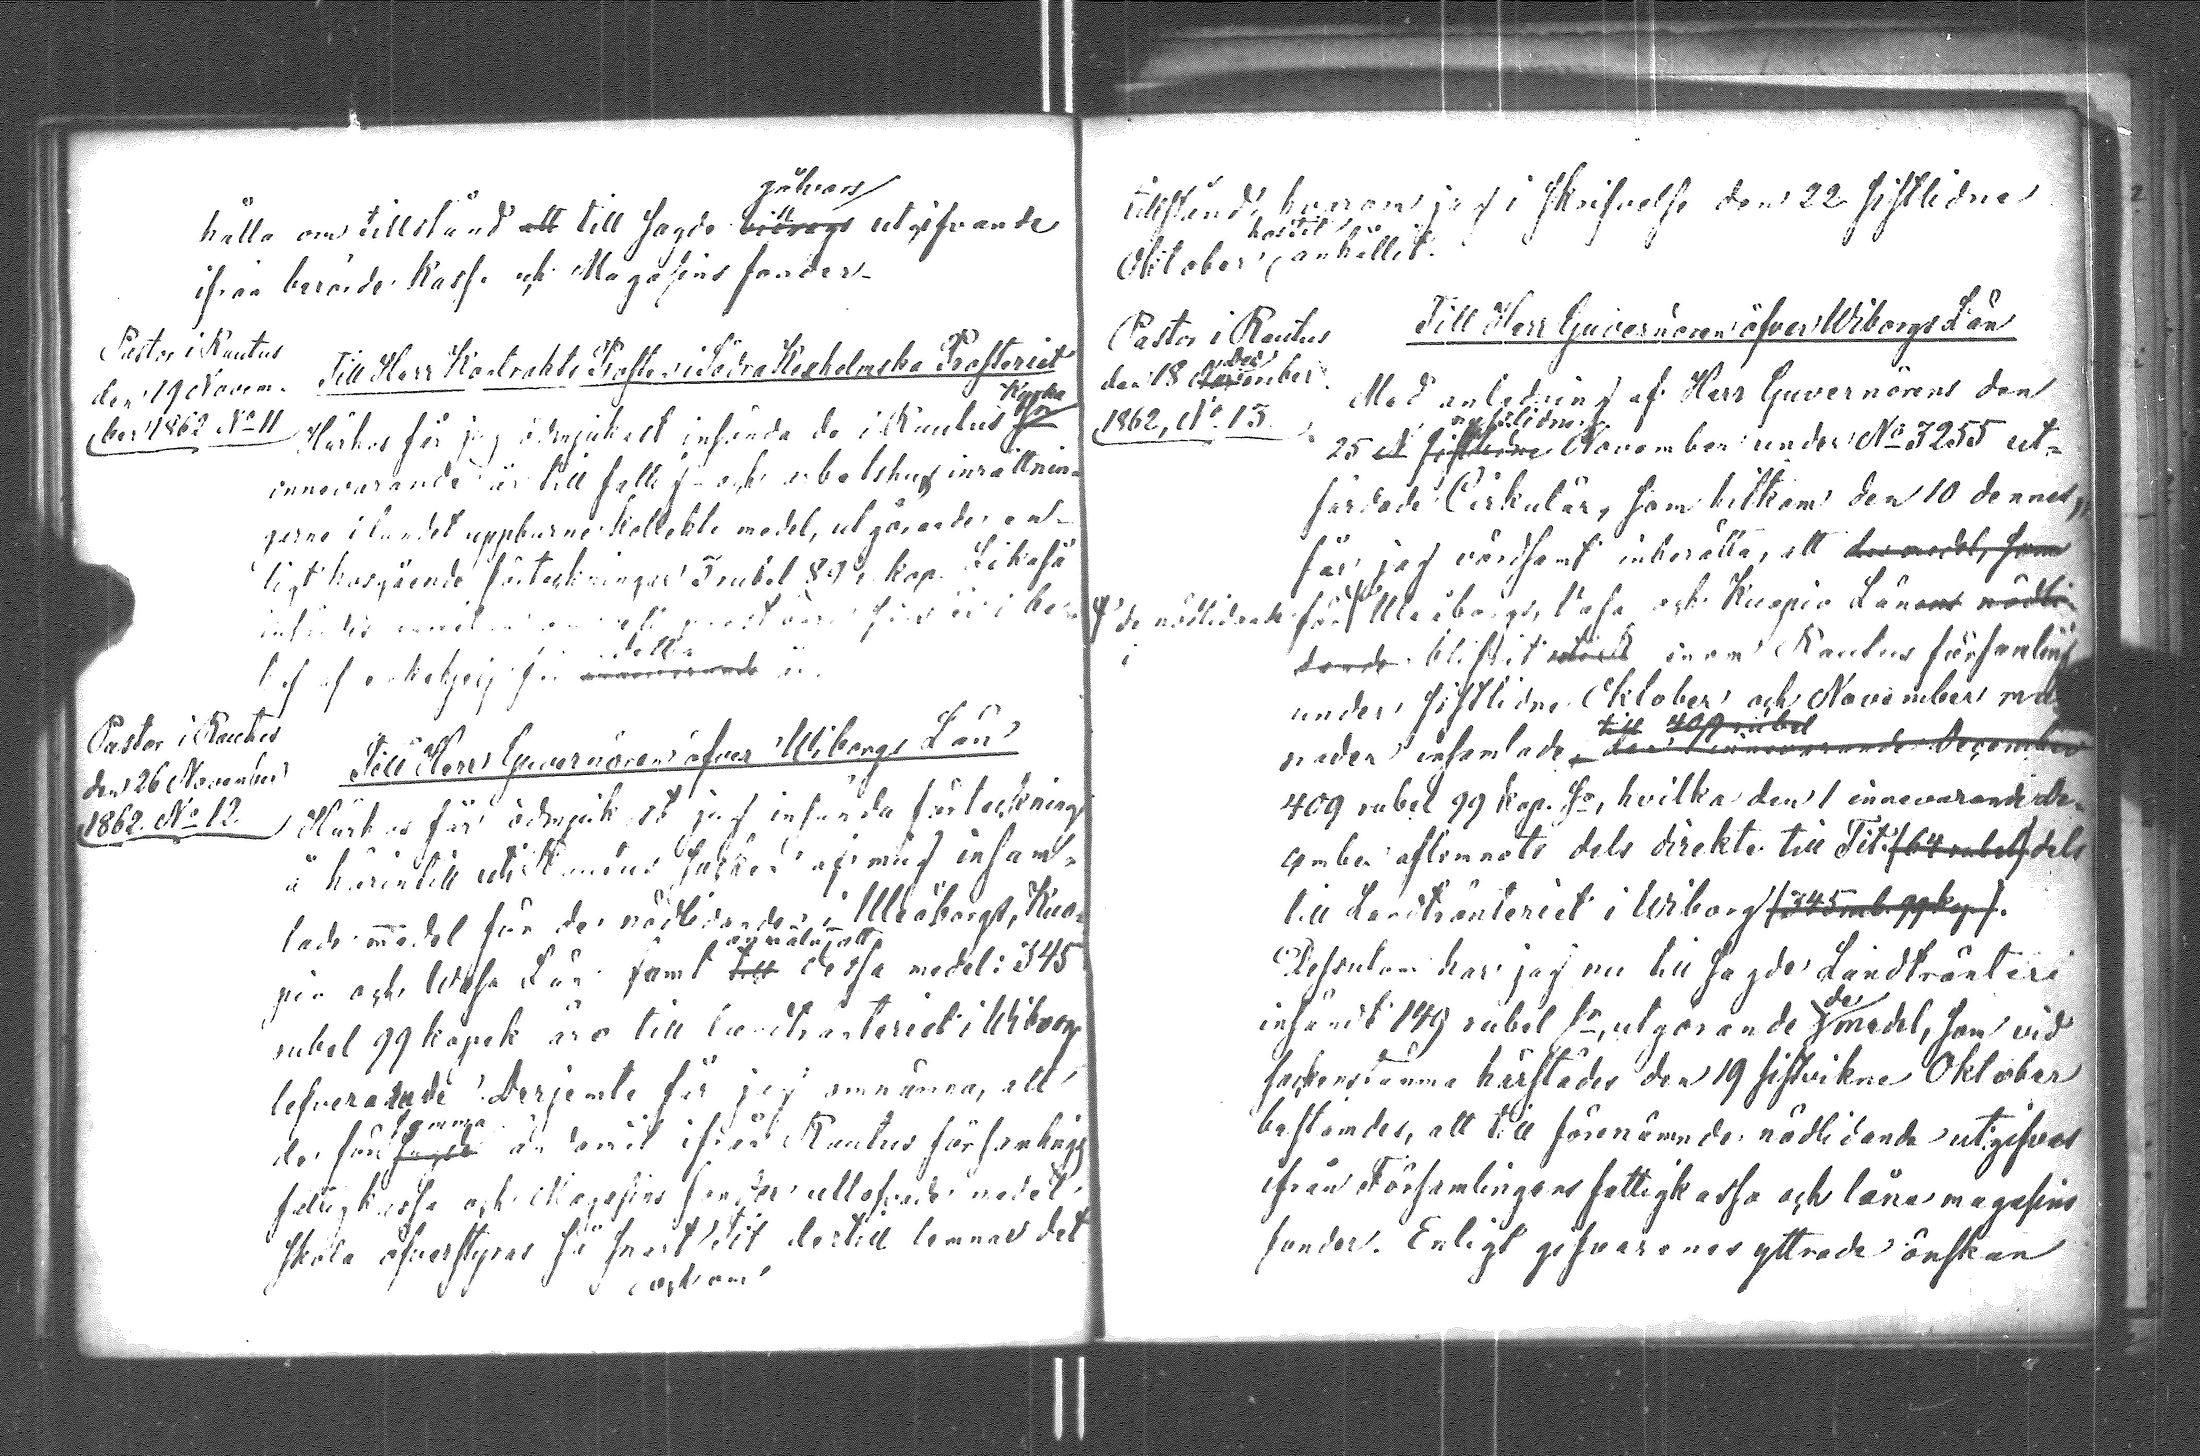 gåfvors
hålla om tillstånd att till sagde bidrags utgifvande
ifrån berörde Kassa och Magasins fonder.
Pastor i Rautus
den 19 Novem-
ber 1862 No 11
Till Herr Kontrakts Prosten i Södra Kexholmska Prosteriet
Härhos får jag ödmjukast insända de i Rautus
innevarande år till fattig- och arbetshus inrättnin-
garne i landet uppburne Kollekte medel, utgörande en-
ligt hosgående förteckningar 3 rubel 89 kop. Likaså
detta
innevarande år.
Pastor i Rautus
den 26 November
1862. No 12.
Till Herr Guvernören öfver Wiborgs Län
Härhos får ödmjukast jag insända förteckning
å härintill utkomne socken af mig insam-
lade medel för de nödlidande i Uleåborgs, Kuo-
pio och Wasa Län samt anmäla, att dessa medel: 345
rubel 99 kopek äro till landtränteriet i Wiborg
lefvererade. Derjemte får jag omnämna, att
samma
de för sagde än damål ifrån Rautus församlings
fattigkassa och Magasins fonder utlofvade medel
skola öfverstyras så snart Tit dertill lemnar det
och om
tillstånd, hvarom jag i skrifvelse den 22 sistlidne
hos Tit
Oktober anhållit.
Pastor i Rautus
den 18 December
1862, No 13.
Till Herr Guvernören öfver Wiborgs Län
Med anledning af Herr Guvernörens den
nästlidne
25 sistlidne November under No 3255 ut-
färdade Cirkulär, som hitkom den 10 dennes,
får jag vördsamt inberätta, att de medel, som
de nödlidande i
för Uleåborgs, Wasa och Kuopio Länens nödli-
dande blifvit inom Rautus församling
under sistlidne Oktober och November må-
till 409 rubel
nader insamlade, den 1 innevarande December
409 rubel 99 kop. S:r, hvilka den 1 innevarande De-
cember aflemnats dels direkte till Tit. (64 rubel) dels
till Landtränteriet i Wiborg (345 rub. 99 kop.).
Dessutom har jag nu till sagde Landtränteri
insändt 149 rubel S:r, utgörande de medel, som vid
sockenstämma härstädes den 19 sistvikne Oktober
bestämdes, att till förenämnde nödlidande utgifvas
ifrån Församlingens fattigkassa och låne magasins
fonder. Enligt gifvarenes yttrade önskan